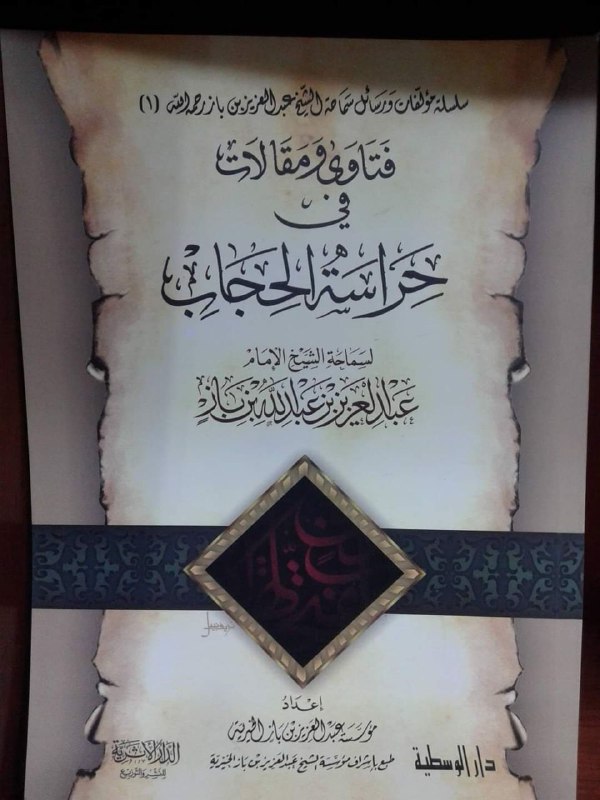 سلسلة مؤلفات ورسائل سماحة الشيخ عبد العزيز بن باز رحمه الله (١)
فَتَاوَى وَمَقَالَات
في
حِرَاسَةُ الحِجَابِ
لسماحة الشيخ الإمام
عبد العزيز بن عبد الله بن باز
إعداد
مؤسسة عبد العزيز بن باز الخيرية
طبع بإشراف مؤسسة الشيخ عبد العزيز بن باز الخيرية
دار الوسطية
الدار الأثرية
للنشر والتوزيع